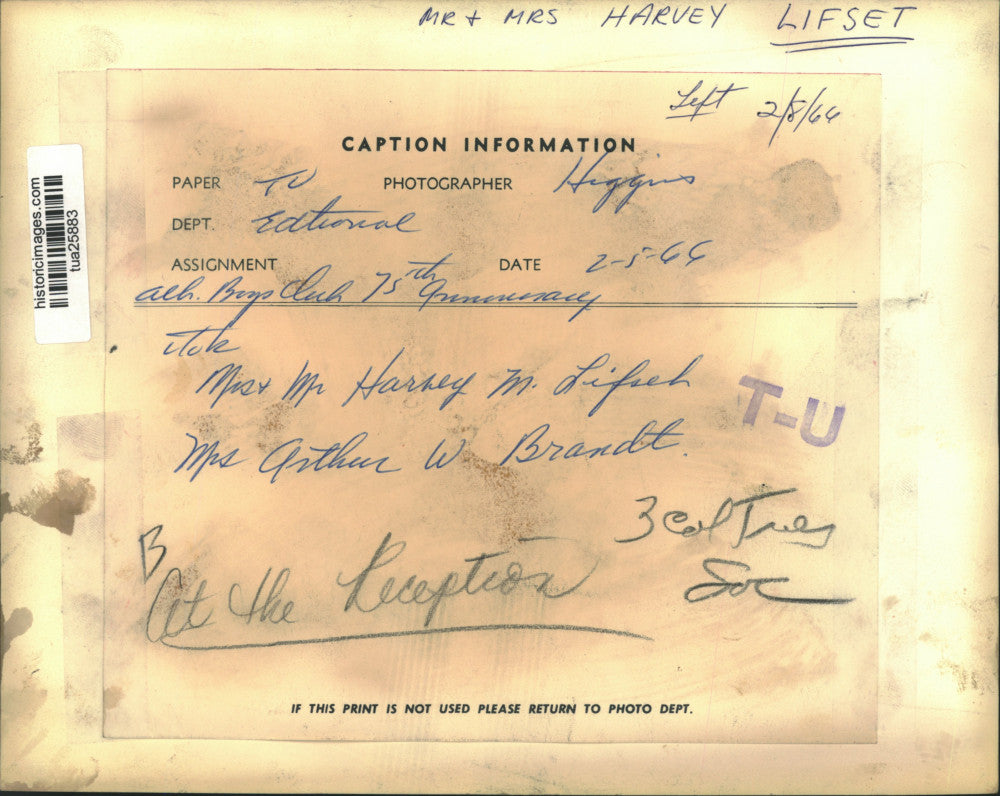 MR + MRS HARVEY LIFSET
Left 2/8/66
CAPTION INFORMATION
PAPER TU PHOTOGRAPHER Higgins
DEPT. Edtional
ASSIGNMENT DATE 2-5-66
Alb. Boys Club 75th Anniversary
historicimages.com
tua25883
Mrs + Mr Harvey M. Lifset
T-U
Mrs Arthur W Brandt.
3 Col Tues
B
Soc
At the Reception
IF THIS PRINT IS NOT USED PLEASE RETURN TO PHOTO DEPT.